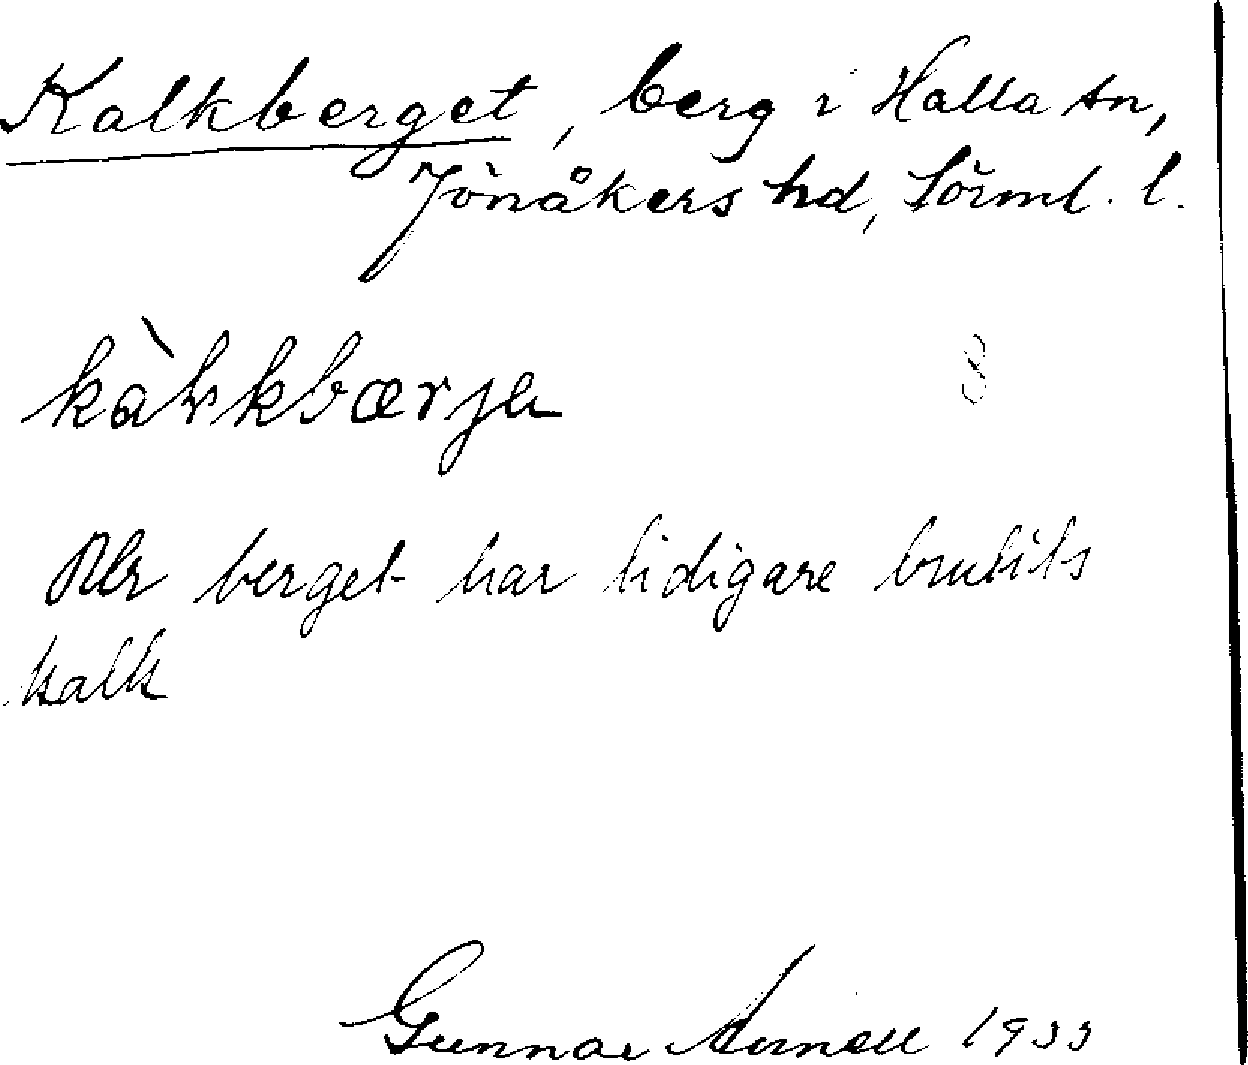 Kalkberget, berg i Halla sn,
Jönåkers hd, Sörml. l.
kàlkbærje
8
Ur berget har tidigare brutits
kalk
Gunnar 1933